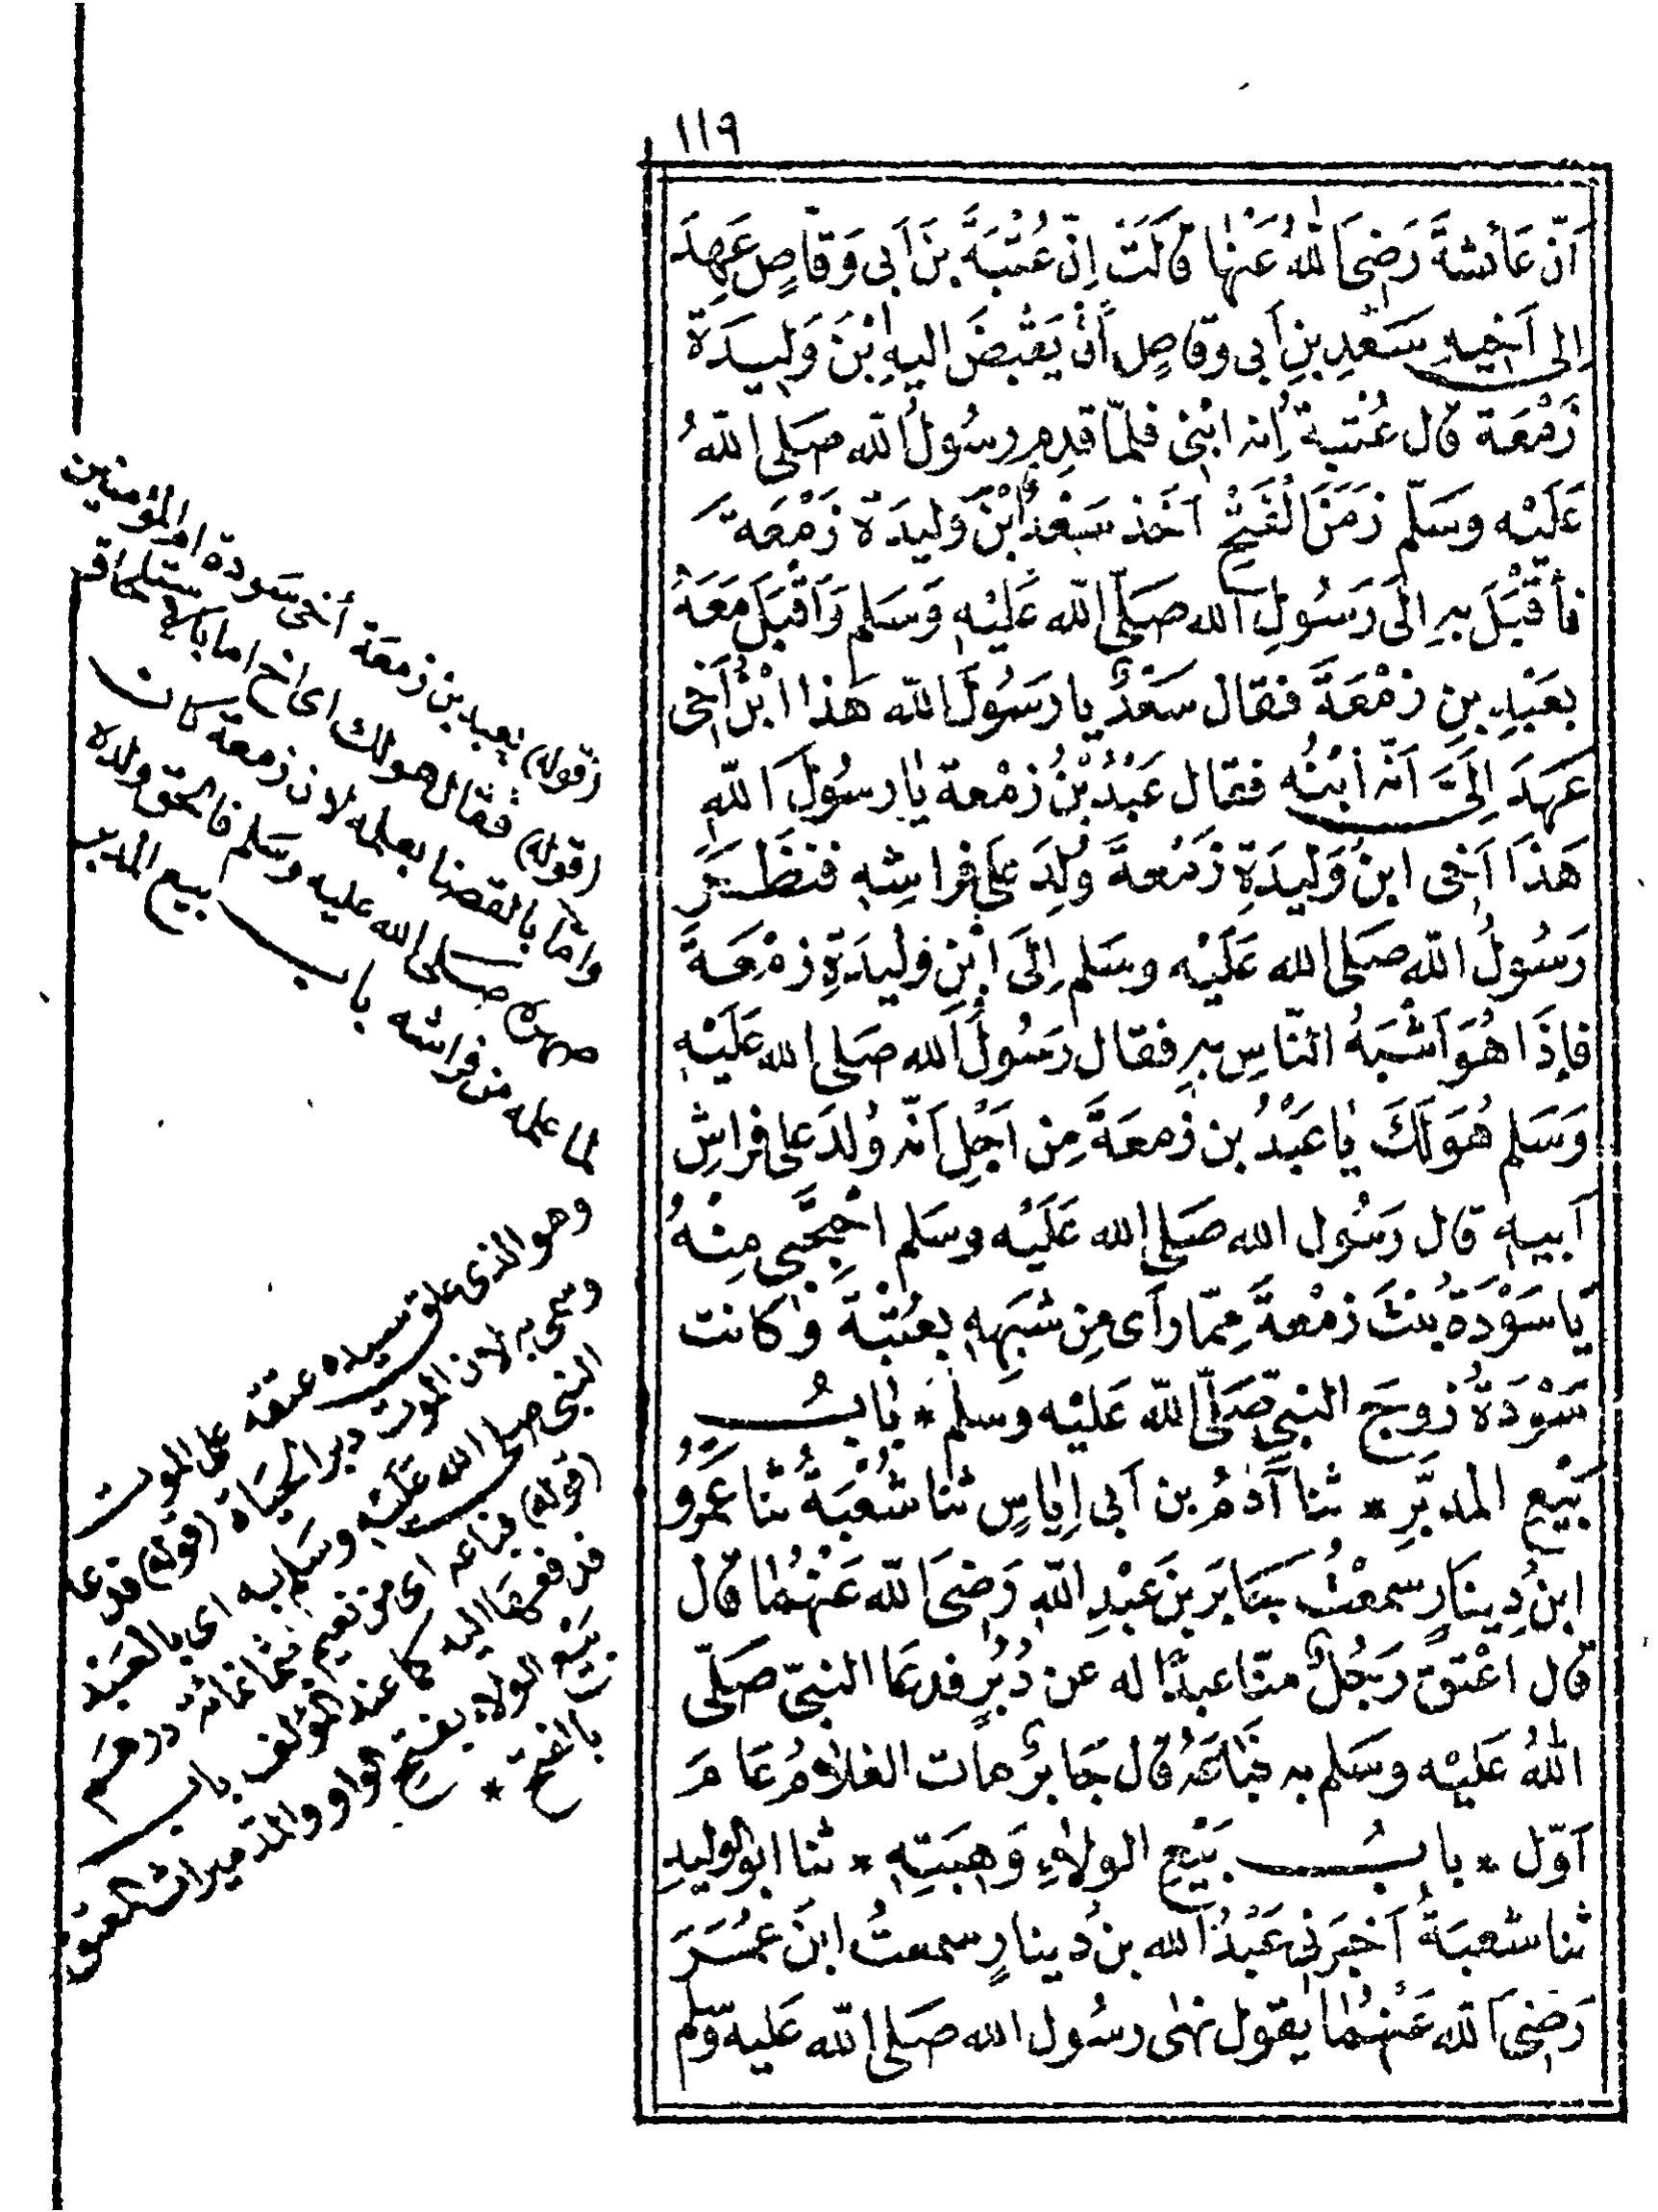 ١١٩
اَنّ عَائشةَ رَضِىَ اللهُ عَنْهٰا قالَتْ اِنّ عُتْبَةَ بْنَ اَبى وَقاصٍ عَهِدَ
اِلى اَخيهِ سَعْدِ بنِ اَبى وقاصٍ اَنْ يَقْبِضَ اليهِ ابْنَ وَليدَة
زَمْعَة قال عُتْبة اِنه ابْنى فلمّا قدِم رسُولُ الله صَلى اللهُ
عَلَيْه وسَلّم زَمَنَ الْفَتْحِ اَخَذ سَعْدٌ ابْنَ وَليدَة زَمْعَة
فأقْبَلَ بهِ اِلَى رَسُولِ الله صَلّى الله عَلَيْهِ وَسَلم وَاَقْبَلَ مَعَهُ
بعَبْدِ بنِ زمْعَةَ فقال سَعْدٌ يا رَسُولَ الله هَذا ابْنُ اَخى
عَهِدَ اِلَىَّ اَنّه ابْنُه فقال عَبْدُ بْنُ زمْعة يٰا رسُولَ اللهِ
هَذَا اَخى ابنُ وَليدَةِ زَمْعةَ وُلِدَ عَلى فراشِهِ فنَظَرَ
رَسُولُ الله صَلى الله عَلَيْه وسَلم اِلَى ابْنِ وليدَةِ زمْعَةَ
فاِذَا هُوَ اَشْبَهُ النّاسِ بهِ فقال رَسُولُ الله صَلى الله عَلَيْهِ
وَسَلم هُوَ لَكَ يٰا عَبْدُ بن زَمعَةَ مِن اَجْلِ اَنّه وُلدَ على فراشِ
اَبيهِ قال رَسُول الله صَلى الله عَلَيْه وسَلم احْتَجِبى مِنْهُ
يَا سَوْدَة بنْتَ زمْعةَ مِمّا رَاَى مِن شبَهِهِ بعُتْبةَ وَكانت
سَوْدَةُ زوجَ النبىِّ صَلّى الله عَليْه وسَلم * بٰابُ
بَيْعِ المدبَّرِ * ثنا آدَمُ بن اَبى اِيٰاسٍ ثنا شُعْبَةُ ثنا عَمْرُو
ابنُ دِينارٍ سمعْتُ جَابرَ بنَ عبْدِ اللهِ رَضىَ الله عَنْهُما قال
قال اعْتقَ رَجُلٌ منّا عبدًا له عن دُبُرٍ فدعَا النبىّ صَلّى
اللهُ عَليْه وسَلم به فبَاعَهُ قال جَابرٌ مات الغلٰامُ عَامَ
اَوّل * بابُ بَيْعِ الولٰاءِ وَهِبَتِهِ * ثنا ابو الوليدِ
ثنا شعبَةُ اَخبَرَنى عَبْدُ الله بنُ دينارٍ سمعتُ ابنَ عُمَرَ
رَضىَ الله عَنْهُمٰا يقول نهٰى رسُول الله صَلى الله عَليه وسّلم
(قوله) بعبد بن زمعة أخى سودة ام المؤمنين
(قوله) فقال هو لك اى اخ اما باستلحاقه
واما بالقضا بعلمه لان زمعة كان
صهره صلى الله عليه وسلم فالحق ولده
لما علمه من فراشه باب بيع المدبر
وهو الذى علق سيده عتقه على الموت
وسمى به لان الموت دبر الحياة (قوله) فدعا
النبى صلى الله عليه وسلم به اى بالعبد
(قوله) فباعه اى من نعيم بثمانمائة درهم
فدفعها اليه كما عند المؤلف باب
بيع الولاء بفتح الواو والمد ميراث المعتق
بالفتح *